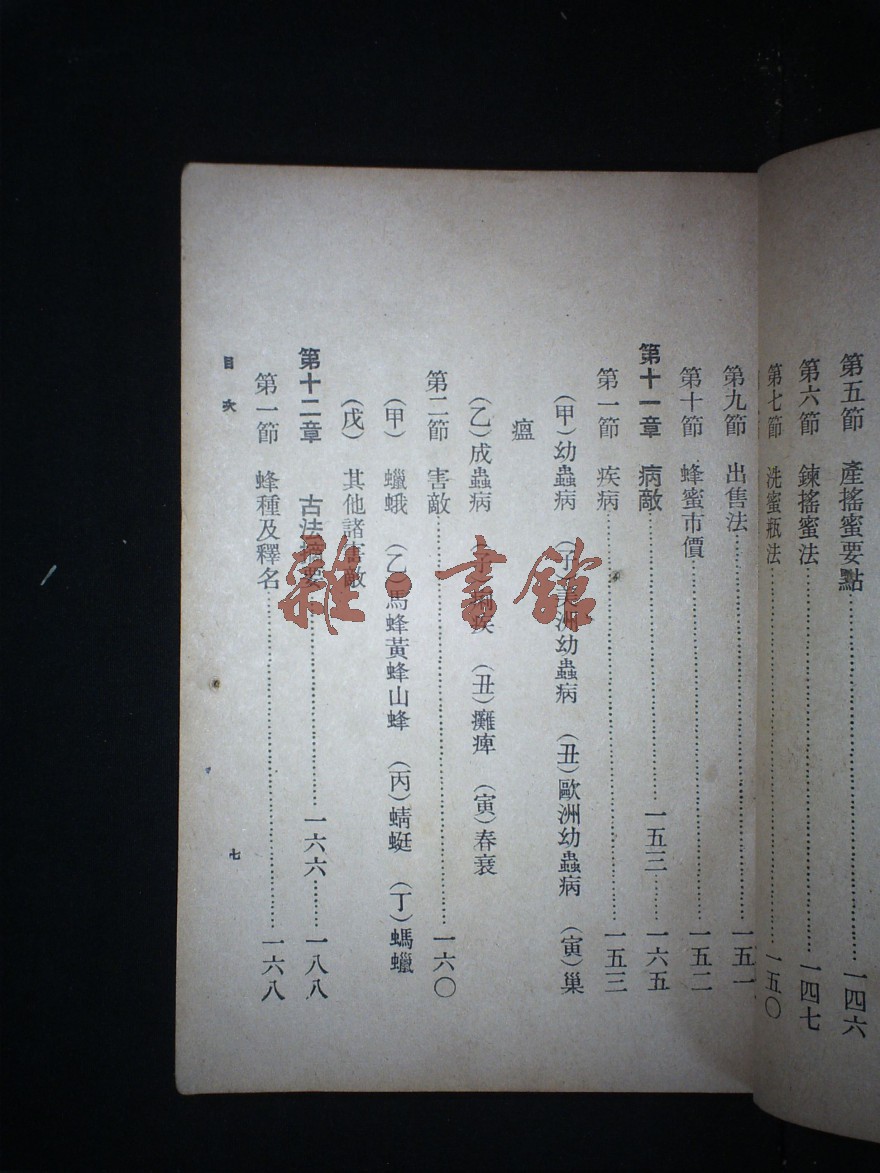 第五節　產搖蜜要點…………一四六
第六節　鍊搖蜜法…………一四七
第七節　洗蜜瓶法…………一五〇
第九節　出售法…………一五一
第十節　蜂蜜市價…………一五二
第十一章　病敵…………一五三……一六五
第一節　疾病…………一五三
(甲)幼蟲病　(子)美洲幼蟲病　(丑)歐洲幼蟲病　(寅)巢
瘟
(乙)成蟲病　(子)痢疾　(丑)癱痺　(寅)春衰
第二節　害敵…………一六〇
(甲)　蠟蛾　(乙)馬蜂黃蜂山蜂　(丙)蜻蜓　(丁)螞蠟
(戊)　其他諸害敵
第十二章　古法摘要…………一六六……一八八
第一節　蜂種及釋名…………一六八
目次
七
雜·書館